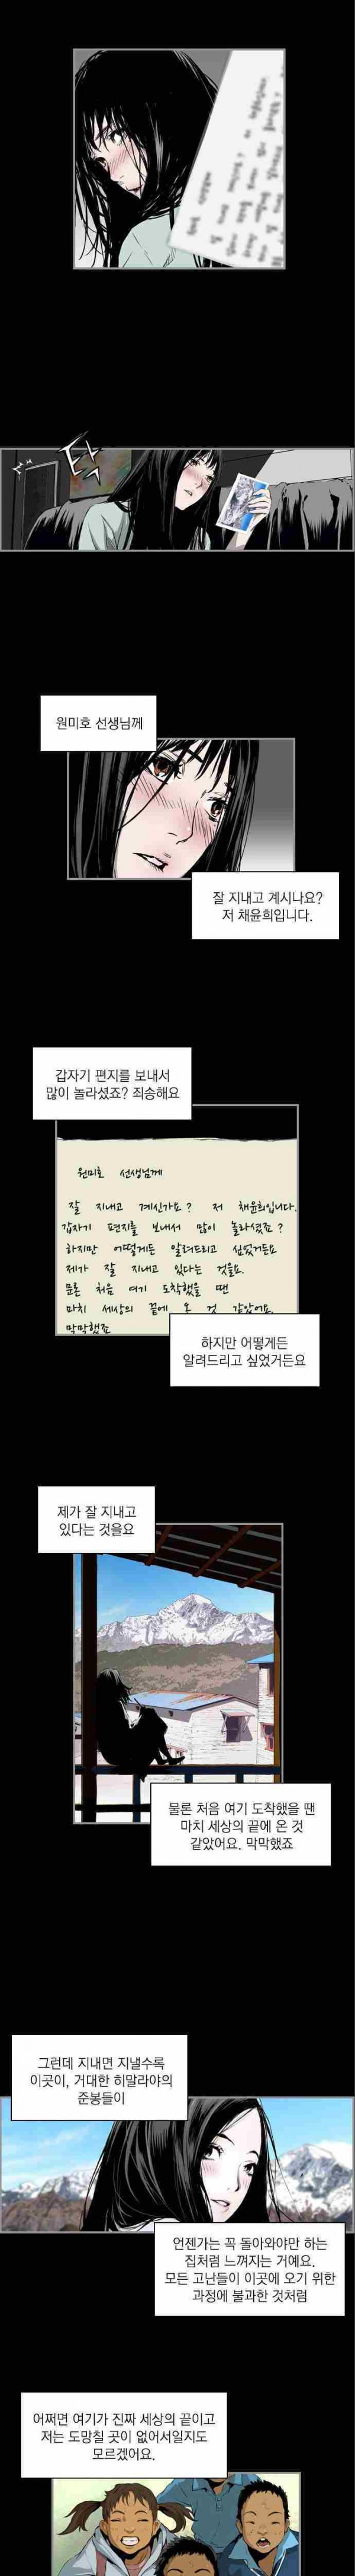 탁
원미호 선생님께
잘 지내고 계시나요?
저 채윤희입니다.
갑자기 편지를 보내서
많이 놀라셨죠? 죄송해요
원미호 선생님께
잘 지내고 계신가요? 저 채윤희입니다.
갑자기 편지를 보내서 많이 놀라셨죠?
하지만 어떻게든 알려드리고 싶었거든요
제가 잘 지내고 있다는 것을요.
물론 처음 여기 도착했을 땐
마치 세상의 끝에 온 것 같았어요.
막막했죠
하지만 어떻게든
알려드리고 싶었거든요
제가 잘 지내고
있다는 것을요
물론 처음 여기 도착했을 땐
마치 세상의 끝에 온 것
같았어요. 막막했죠
그런데 지내면 지낼수록
이곳이, 거대한 히말라야의
준봉들이
언젠가는 꼭 돌아와야만 하는
집처럼 느껴지는 거예요.
모든 고난들이 이곳에 오기 위한
과정에 불과한 것처럼
어쩌면 여기가 진짜 세상의 끝이고
저는 도망칠 곳이 없어서일지도
모르겠어요.